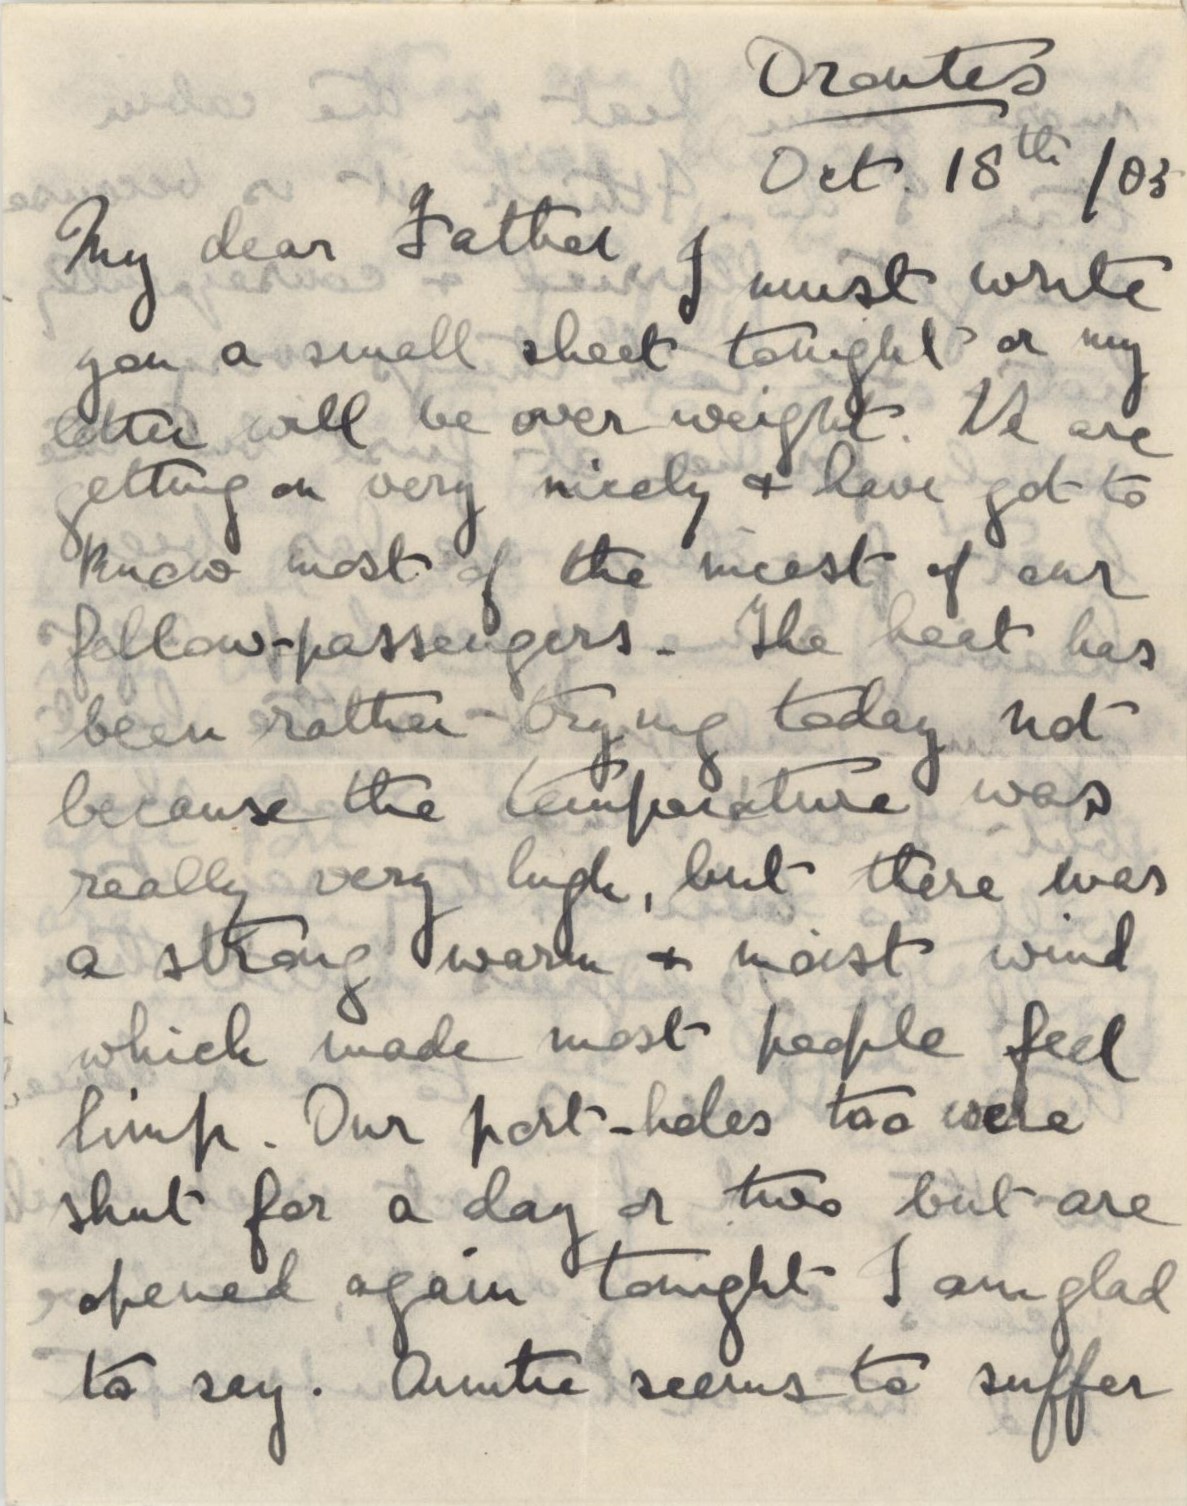 Orontes
Oct. 18th /03
My dear Father I must write
you a small sheet tonight or my
letter will be over weight. We are
getting on very nicely & have got to
know most of the nicest of our
fellow-passengers. The heat has
been rather trying today not
because the temperature was
really very high, but there was
a strong warm & moist wind
which made most people feel
limp. Our port-holes too were
shut for a day or two but are
opened again tonight I am glad
to say. Auntie seems to suffer